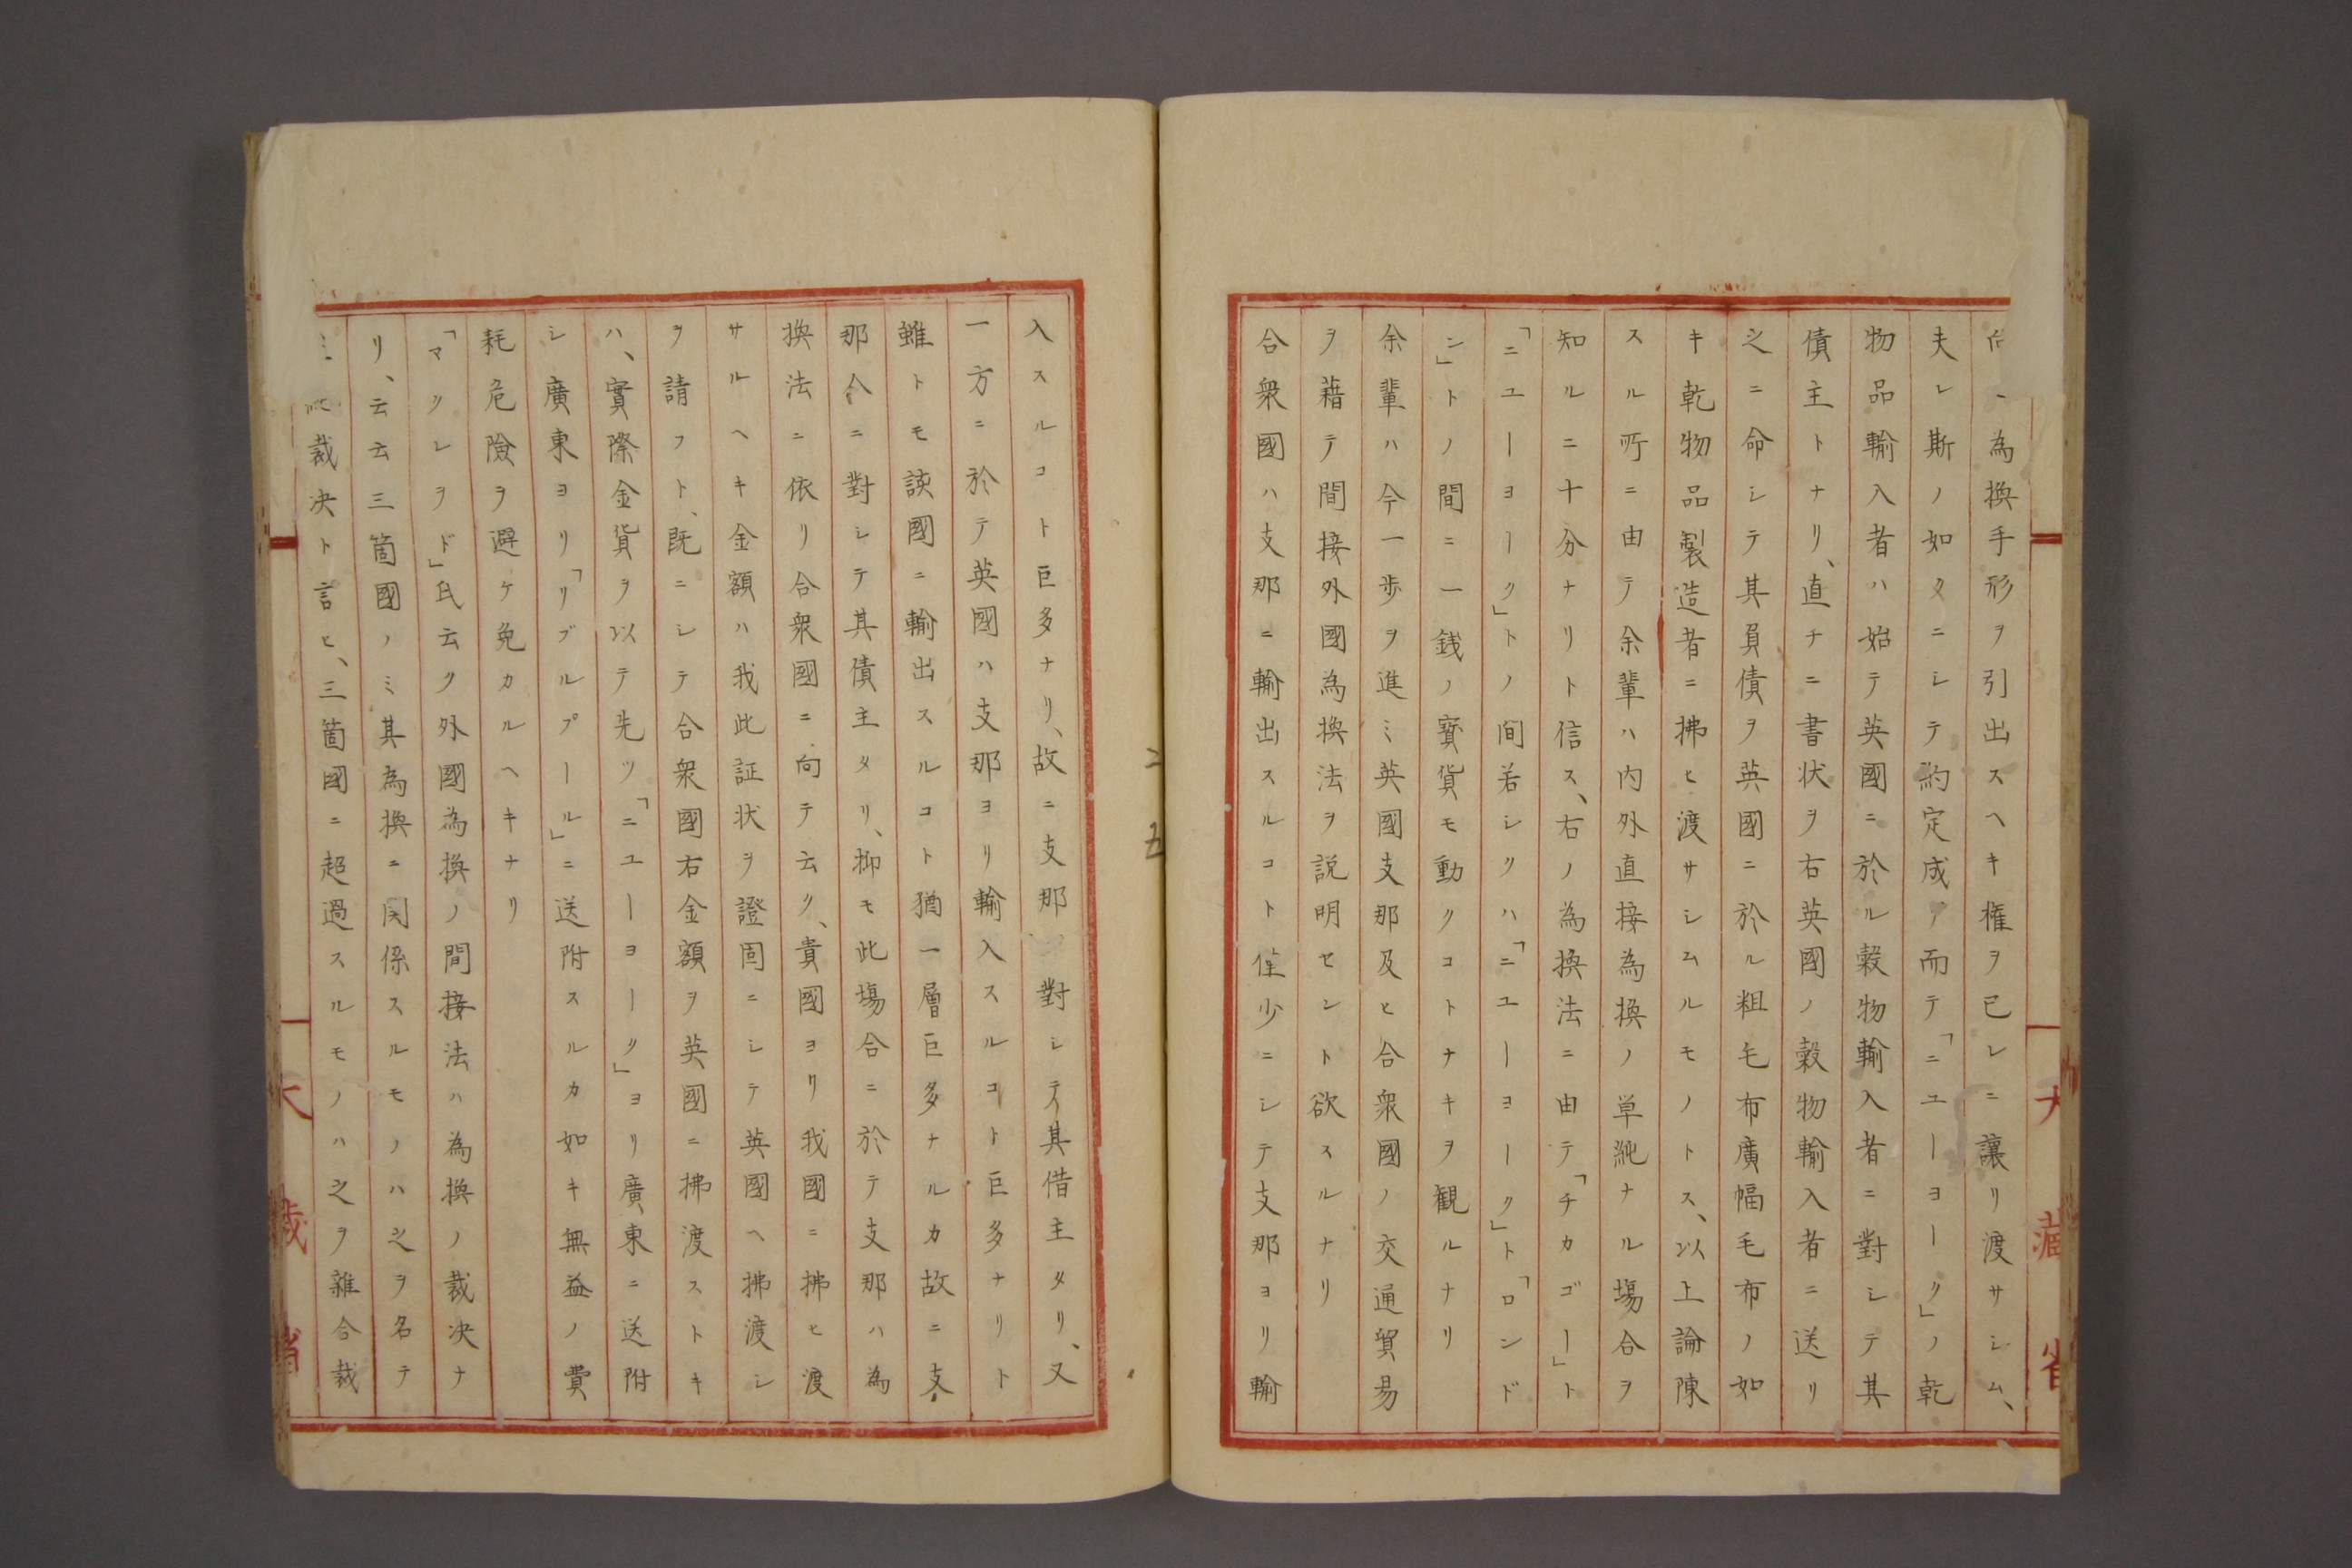 為換手形ヲ引出スヘキ権ヲ已レニ讓リ渡サシム、
夫レ斯ノ如クニシテ約定成ノ而テ「ニユーヨーク」ノ乾
物品輸入者ハ始テ英國ニ於ル穀物輸入者ニ對シテ其
債主トナリ、直チニ書状ヲ右英國ノ穀物輸入者ニ送リ
之ニ命シテ其負債ヲ英國ニ於ル粗毛布廣幅毛布ノ如
キ乾物品製造者ニ拂ヒ渡サシムルモノトス、以上論陳
スル所ニ由テ余輩ハ内外直接為換ノ単純ナル場合ヲ
知ルニ十分ナリト信ス、右ノ為換法ニ由テ「チカゴー」ト
「ニユーヨーク」トノ間若シクハ「ニユーヨーク」ト「ロンド
ン」トノ間ニ一銭ノ寳貨モ動クコトナキヲ観ルナリ
余輩ハ今一歩ヲ進ミ英國支那及ヒ合衆國ノ交通貿易
ヲ藉テ間接外國為換法ヲ説明セント欲スルナリ
合衆國ハ支那ニ輸出スルコト僅少ニシテ支那ヨリ輸
入スルコト巨多ナリ、故ニ支那ニ對シテ其借主タリ、又
一方ニ於テ英國ハ支那ヨリ輸入スルコト巨多ナリト
雖トモ該國ニ輸出スルコト猶一層巨多ナルカ故ニ支
那人ニ對シテ其債主タリ、抑モ此場合ニ於テ支那ハ為
換法ニ依リ合衆國ニ向テ云ク、貴國ヨリ我國ニ拂ヒ渡
サルヘキ金額ハ我此証状ヲ證固ニシテ英國ヘ拂渡シ
ヲ請フト、既ニシテ合衆國右金額ヲ英國ニ拂渡ストキ
ハ、實際金貨ヲ以テ先ツ「ニユーヨーク」ヨリ廣東ニ送附
シ廣東ヨリ「リブルプール」ニ送附スルカ如キ無益ノ費
耗危險ヲ避ケ免カルヘキナリ
「マクレヲド」氏云ク外國為換ノ間接法ハ為換ノ裁決ナ
リ、云云三箇國ノミ其為換ニ関係スルモノハ之ヲ名テ
裁决ト言ヒ、三箇國ニ超過スルモノハ之ヲ雜合裁
大藏省
大藏省
二五